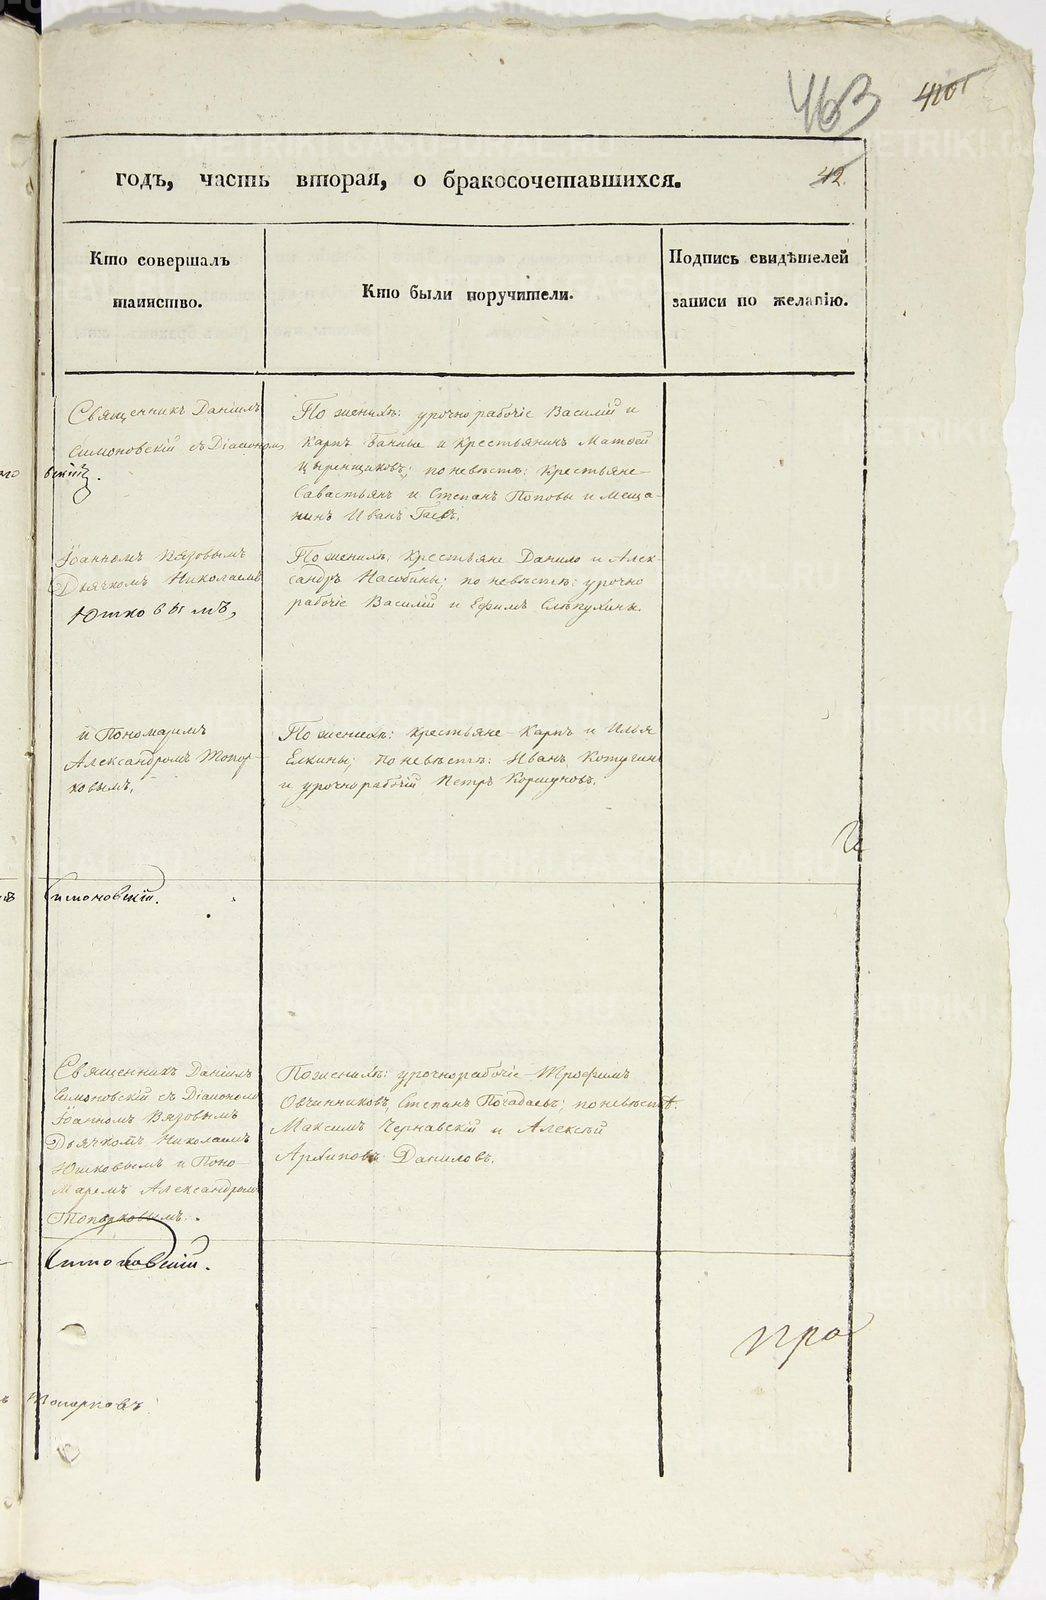 463
420
годъ, часть вторая, о бракосочетавшихся.
42.
Кто совершалъ
таинство.
Кто были поручители.
Подпись свидѣтелей
записи по желанію.
Священникъ Даніилъ
Симоновскій съ Діакономъ
вскій.
По женихѣ: урочнорабочіе Василій и
Карпъ Банны и Крестьянинъ Матѳей
Цыренщиковъ; по невѣстѣ: Крестьяне
Савастьянъ и Степанъ Поповы и Меща-
нинъ Иванъ Гаевъ.
Іоанномъ Вязовымъ
Дьячкомъ Николаемъ
Юшковымъ,
По женихѣ: Крестьяне Данило и Алек-
сандръ Насобины; по невѣстѣ: урочно
рабочіе Василій и Ефимъ Слѣпухины.
и Пономаремъ
Александромъ Топор-
ковымъ.
По женихѣ: крестьяне Карпъ и Илья
Елкины; по невѣстѣ: Иванъ
и урочнорабочій Петръ Коршуновъ.
Симоновскій.
Священникъ Даніилъ
Симоновскій съ Діакономъ
Іоанномъ Вязовымъ
Дьячкомъ Николаемъ
Юшковымъ и Поно-
маремъ Александромъ
Топорковымъ.
По женихѣ: урочнорабочіе Трофимъ
Овчинниковъ, Степанъ; по невѣстѣ:
Максимъ Чернавскій и Алексѣй
Архиповъ Даниловъ.
Симоновскій.
про
Топорковъ
METRIKI.GASO-URAL.RU